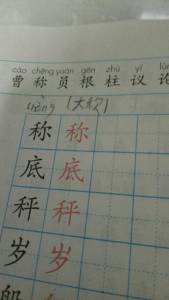 cáo chēng yuán gān zhù yì lùn
曹 称 员 根 柱 议 论
(大秤)
称 称
底 底
秤 秤
岁 岁